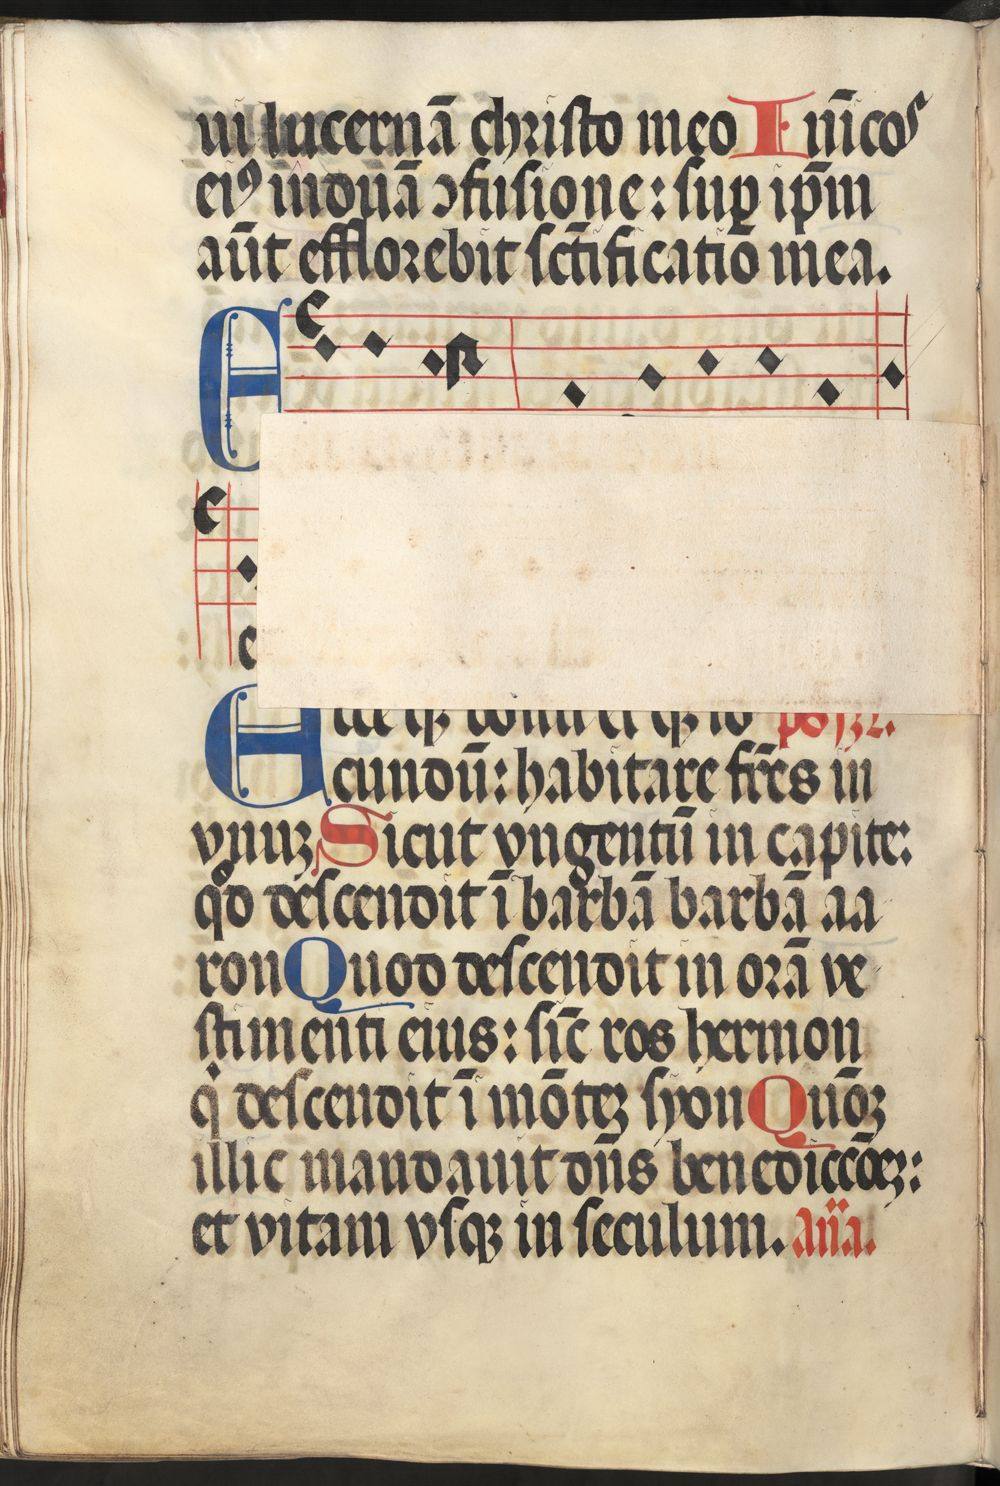 ui lucernā christo meo Inīcos
eiꝰ induā ↄfusione: suꝑ ip̄m
aūt efflorebit sc̄tificatio mea.
E
E
cundū: habitare fr̄es in
vnuꝫ Sicut vngentū in capite:
qd̓ descendit ī barbā barbā aa
ron Quod descendit in orā ve
stimenti eius: sic̄ ros hermon
q̇ descendit ī mōteꝫ syon Qūoꝫ
illic mandauit dn̄s benediccōeꝫ:
et vitam vsqꝫ in seculum. an̄a.